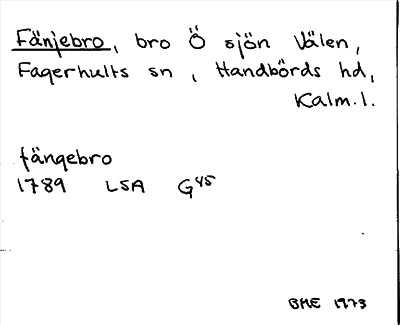 Fänjebro, bro Ö sjön Välen,
Fagerhults sn, Handbörds hd,
Kalm. l.
fängebro
1789 LSA G45
BME 1973